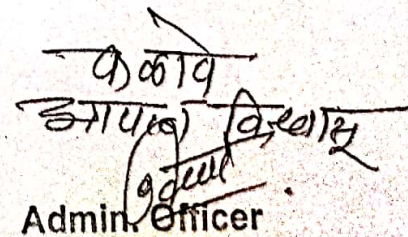 कळावे
आपला विश्वासू
Admin. Officer